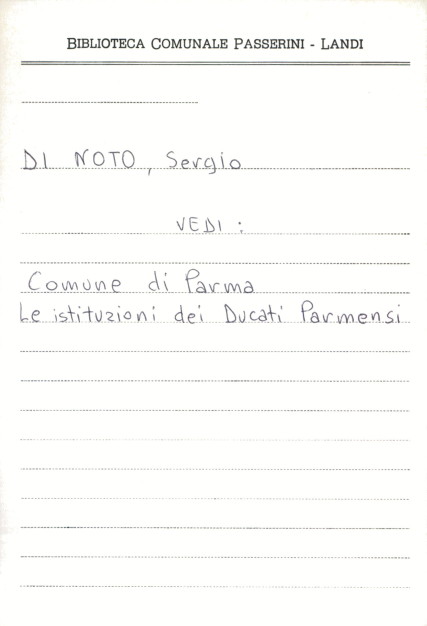 BIBLIOTECA COMUNALE PASSERINI - LANDI
DI NOTO, Sergio
VEDI :
Comune di Parma
Le istituzioni dei Ducati Parmensi